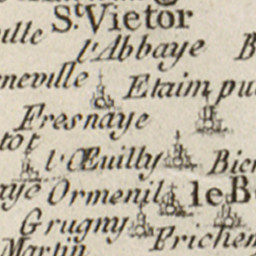 St. Vietor
ville
l'Abbaye
B
neville
Etaim pui
Fresnaye
tot
l'Œuilly
Bien
aye
Ormenil
le B
Grugny
Frichem
Martin